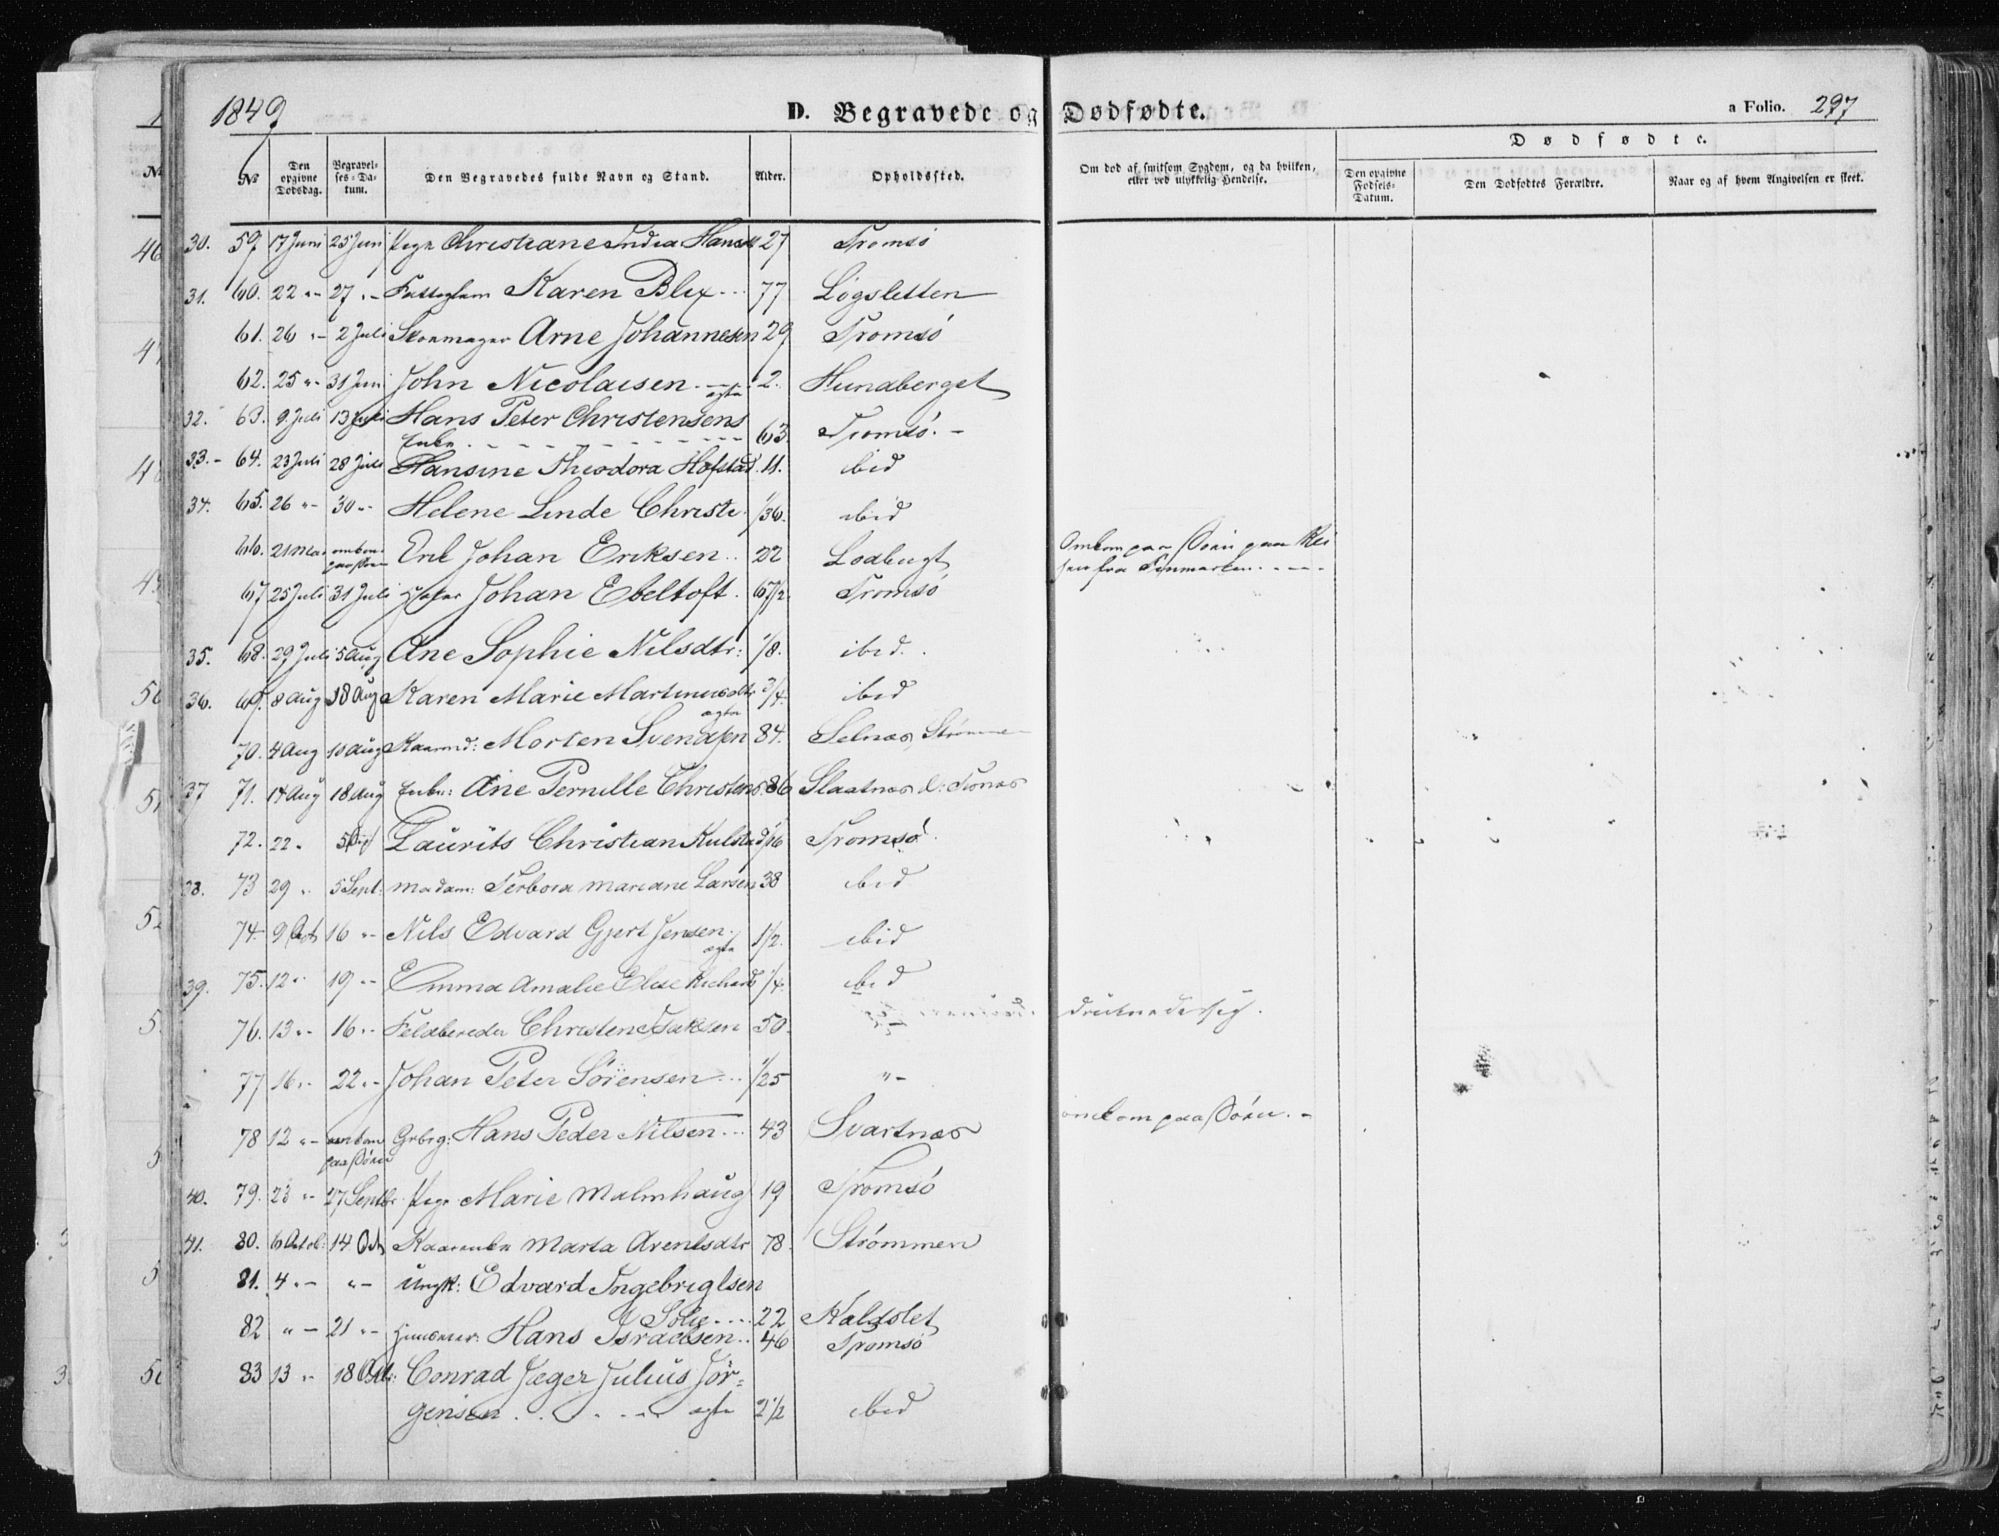 1849 D. Begravede og Dødfødte. a Folio. 297
Dødfødte.
No Den opgivne Dødsdag. Begravelses-Datum. Den Begravedes fulde Navn og Stand. Alder. Opholdssted. Om død af smitsom Sygdom, og da hvilken, eller ved ulykkelig Hendelse. Den opgivne Fødsels-Datum. Den Dødfødtes Forældre. Naar og af hvem Angivelsen er skeet.
30. 59 17 Juni 25 Juni Pige Christiane Andrea Hansd 27 Tromsø
31. 60. 22 "- 27 "- Karen Blix 77 Løgsletten
61. 26 "- 2 Juli Skomager Arne Johannesen 29 Tromsø
62. 25 "- 31 Juni John Nicolaisen ægte 2. Hundberget
32. 63. 9 Juli 13 Juli Hans Peter Christensens
Enke 63 Tromsø. -
33.- 64. 23 Juli 28 Juli Hansine Theodora Hofstad. 11. ibid
34. 65. 26 "- 30 "- Helene Linde Christi 1/36. ibid
66. 21 Mai omkom paa Søen Erik Johan Eriksen 22 Lodbugt Omkom paa Søen paa Rei
sen fra Finmarken
67 25 Juli 31 Juli Johan Ebeltoft. 67 1/2 Tromsø
35. 68. 29 Juli 5 Aug Ane Sophie Nilsdtr: 1/8. ibid.
36. 69. 8 Aug 18 Aug Karen Marie Martinusdtr ægte 3/4. ibid
70. 4 Aug 18 Aug Kaarmd: Morten Svendsen 84. Selnæs, Strømmen
37 71. 14 Aug 18 Aug Enke: Ane Pernille Christens. 86 Slaatnæs
72. 22 " Laurits Christian Kulstad 1/16 Tromsø
38. 73 29 " 5 Sept: Madam: Terbora Mariane Larsen 38 ibid
74. 16 "- Nils Edvard Gjert Jensen. ægte 1 1/2. ibid
39. 75. 12 " 19 "- Emma Amalie Elise Richard 1/4. ibid
76. 13 "- 16 "- Feldbereder Christen Isaksen 50. druknede sig.
77 16 "- 22 "- Johan Peter Sørensen 1/25 "-
78 12 "- omkom paa Søen Grbrg: Hans Peder Nilsen 43 Svartnæs omkom paa Søen. -
40. 79. 23 "- 27 Septbr. Pige Marie Malmhaug 19 Tromsø
41. 80. 6 Octob: 14 Oct Kaarenke Marta Arentsdtr 78. Strømmen
81. 4 "- "- Ungk: Edvard Ingebrigtsen
22 Kaldslet
82 "- 21 "- Huuseier: Hans Israelsen 46 Tromsø
83 13 "- 18 Oct: Conrad Jæger Julius Jør=
gensen ægte 2 1/2 ibid